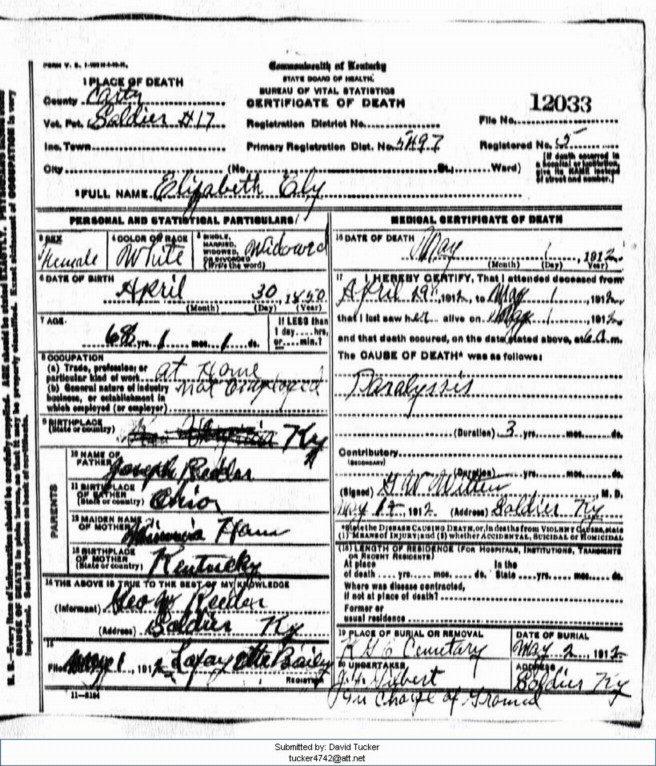 Commonwealth of Kentucky
STATE BOARD OF HEALTH.
BUREAU OF VITAL STATISTICS
CERTIFICATE OF DEATH
1 PLACE OF DEATH
County Carty
Vot. Pct. Soldier #17
Inc. Town
City (No. St., Ward)
Registration District No.
Primary Registration Dist. No. 5497
12033
File No.
Registered No. 5
[If death occurred in a hospital or institution, give its NAME instead of street and number.]
2 FULL NAME Elizabeth Ely
PERSONAL AND STATISTICAL PARTICULARS
3 SEX
Female
4 COLOR OR RACE
White
5 SINGLE, MARRIED, WIDOWED, OR DIVORCED (Write the word)
Widowed
6 DATE OF BIRTH
April 30, 18
(Month) (Day) (Year)
7 AGE
68 yrs. mos. 1 ds.
If LESS than 1 day hrs. or min.?
8 OCCUPATION
(a) Trade, profession, or particular kind of work at Home
(b) General nature of industry business, or establishment in which employed (or employer) not employed
9 BIRTHPLACE
(State or country) Ky
PARENTS
10 NAME OF FATHER Joseph
11 BIRTHPLACE OF FATHER (State or country) Ohio
12 MAIDEN NAME OF MOTHER
13 BIRTHPLACE OF MOTHER (State or country) Kentucky
14 THE ABOVE IS TRUE TO THE BEST OF MY KNOWLEDGE
(Informant) Geo W Reeder
(Address) Soldier Ky
15
Filed May 1, 1912 Lafayette Baily
REGISTRAR
11—5184
MEDICAL CERTIFICATE OF DEATH
16 DATE OF DEATH
May 1, 1912
(Month) (Day) (Year)
17 I HEREBY CERTIFY, That I attended deceased from
April 29th, 1912, to May 1, 1912,
that I last saw her alive on May 1, 1912,
and that death occured, on the date stated above, at 6 a.m.
The CAUSE OF DEATH* was as follows:
Paralyssis
(Duration) 3 yrs. mos. ds.
Contributory
(SECONDARY)
(Duration) yrs. mos. ds.
(Signed) G W M.D.
May 1912 (Address) Soldier Ky
*State the DISEASE CAUSING DEATH, or, in deaths from VIOLENT CAUSES, state (1) MEANS OF INJURY; and (2) whether ACCIDENTAL, SUICIDAL or HOMICIDAL
(18) LENGTH OF RESIDENCE (FOR HOSPITALS, INSTITUTIONS, TRANSIENTS OR RECENT RESIDENTS)
At place of death yrs. mos. ds. In the State yrs. mos. ds.
Where was disease contracted, if not at place of death?
Former or usual residence
19 PLACE OF BURIAL OR REMOVAL
Cemetary
DATE OF BURIAL
May 2, 1912
20 UNDERTAKER
ADDRESS
Soldier Ky
In Charge of Ground
Submitted by: David Tucker
tucker4742@att.net